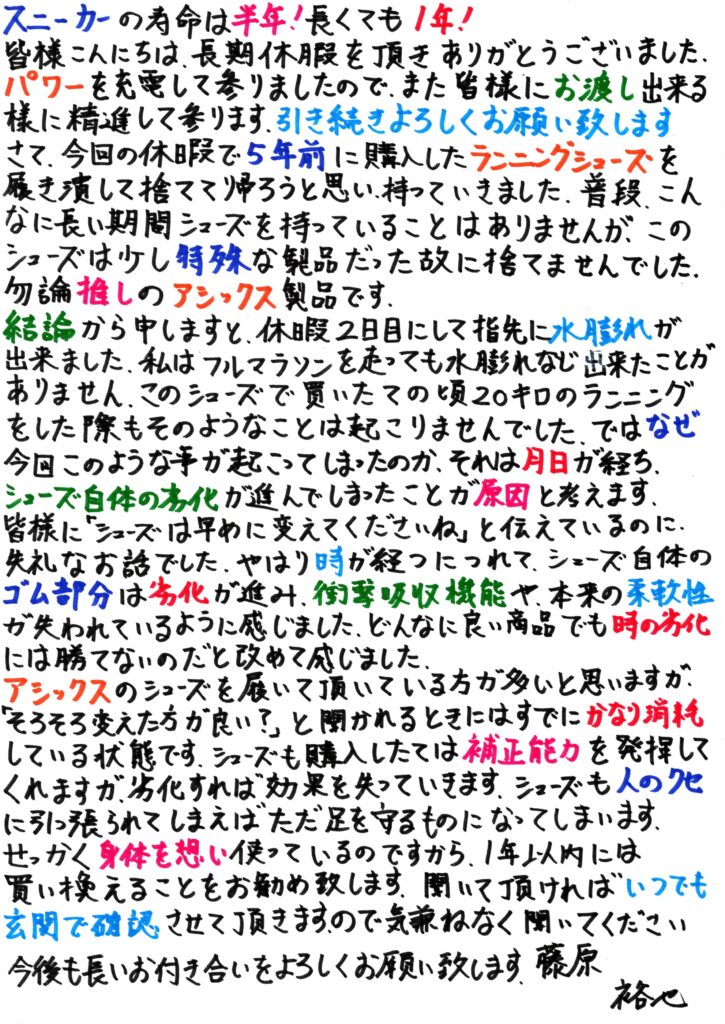 スニーカーの寿命は半年!長くても1年!
皆様こんにちは、長期休暇を頂きありがとうございました.
パワーを充電して参りましたので、また皆様にお渡し出来る
様に精進して参ります.引き続きよろしくお願い致します
さて、今回の休暇で5年前に購入したランニングシューズを
履き潰して捨てて帰ろうと思い、持っていきました.普段、こん
なに長い期間シューズを持っていることはありませんが、この
シューズは少し特殊な製品だった故に捨てませんでした.
勿論推しのアシックス製品です.
結論から申しますと、休暇2日目にして指先に水膨れが
出来ました.私はフルマラソンを走っても水膨れなど出来たことが
ありません.このシューズで買いたての頃20キロのランニング
をした際もそのようなことは起こりませんでした.ではなぜ
今回このような事が起こってしまったのか、それは月日が経ち、
シューズ自体の劣化が進んでしまったことが原因と考えます.
皆様に「シューズは早めに変えてくださいね」と伝えているのに、
失礼なお話でした.やはり時が経つにつれて、シューズ自体の
ゴム部分は劣化が進み、衝撃吸収機能や、本来の柔軟性
が失われているように感じました.どんなに良い商品でも時の劣化
には勝てないのだと改めて感じました.
アシックスのシューズを履いて頂いている方が多いと思いますが、
「そろそろ変えた方が良い?」と聞かれるときにはすでにかなり消耗
している状態です.シューズも購入したては補正能力を発揮して
くれますが、劣化すれば効果を失っていきます.シューズも人のクセ
に引っ張られてしまえばただ足を守るものになってしまいます.
せっかく身体を想い使っているのですから、1年以内には
買い換えることをお勧め致します.聞いて頂ければいつでも
玄関で確認させて頂きますので気兼ねなく聞いてください
今後も長いお付き合いをよろしくお願い致します.藤原
裕也